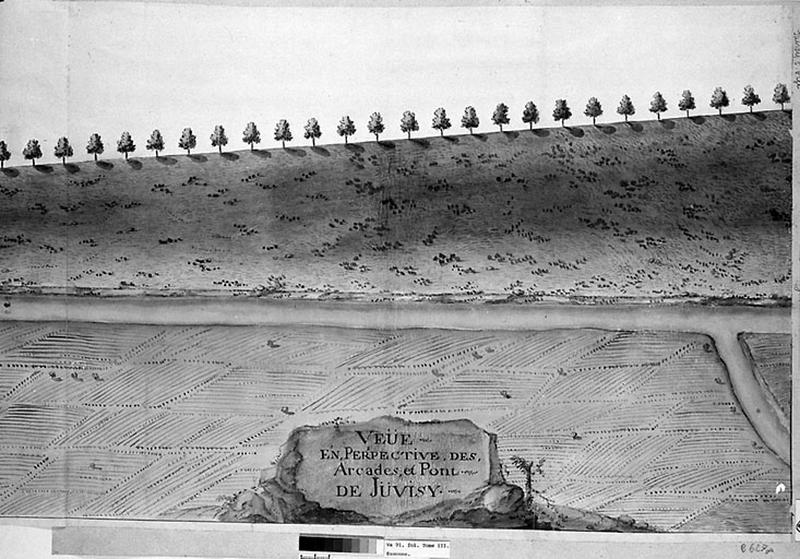 VEÜE
EN, PERPECTIVE. DES,
Arcades, et Pont
DE JUVISY.
Va 91. fol. Tome III.
Essonne.